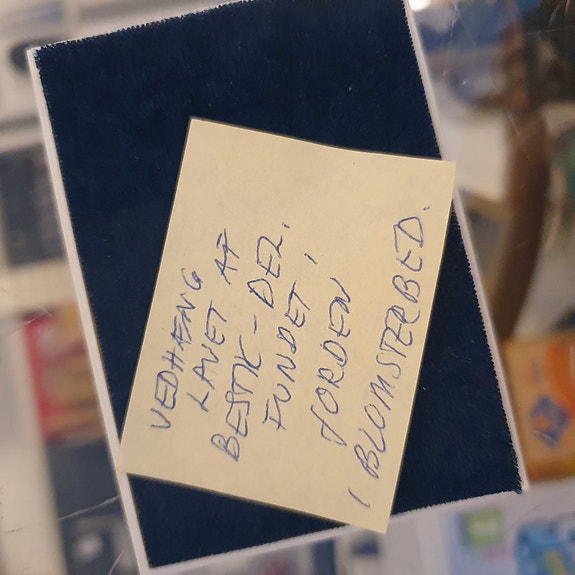 VEDHÆNG
LAVET AF
BESTIK-DEL.
FUNDET I
JORDEN
I BLOMSTERBED.